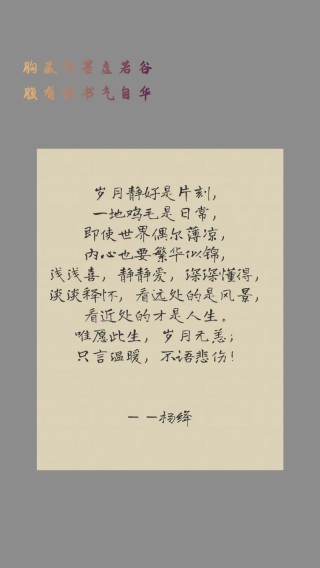 胸藏文墨虚若谷
腹有诗书气自华
岁月静好是片刻，
一地鸡毛是日常，
即使世界偶尔薄凉，
内心也要繁华似锦，
浅浅喜，静静爱，深深懂得，
淡淡释怀，看远处的是风景，
看近处的才是人生。
唯愿此生，岁月无恙；
只言温暖，不语悲伤！
——杨绛